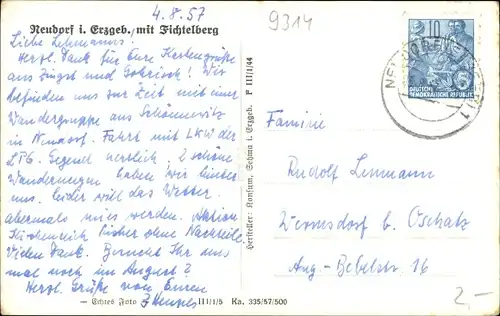 4.8.57
9314
Neudorf i. Erzgeb. mit Fichtelberg
Liebe Lehmanns!
Herzl. Dank für Eure Kartengrüße
aus Zingst und Wir
befinden uns zur Zeit mit einer
Wandergruppe aus
in Neudorf. Fahrt mit LKW der
LPG. Gegend herrlich, 2 schöne
Wanderungen haben wir hinter
uns. Leider will das Wetter
abermals mies werden. Aktion
bisher ohne Nachteile.
Vielen Dank. Besucht Ihr uns
mal noch im August?
Herzl. Grüße von Euren
— Echtes Foto III/1/5 Ka. 335/57/500
Hersteller: Konsum, Sehma i. Erzgeb. P III/1/44
10
DEUTSCHE
DEMOKRATISCHE REPUBLIK
Familie
Rudolf Lehmann
Wermsdorf b. Oschatz
Aug-Bebelstr 16
2,-